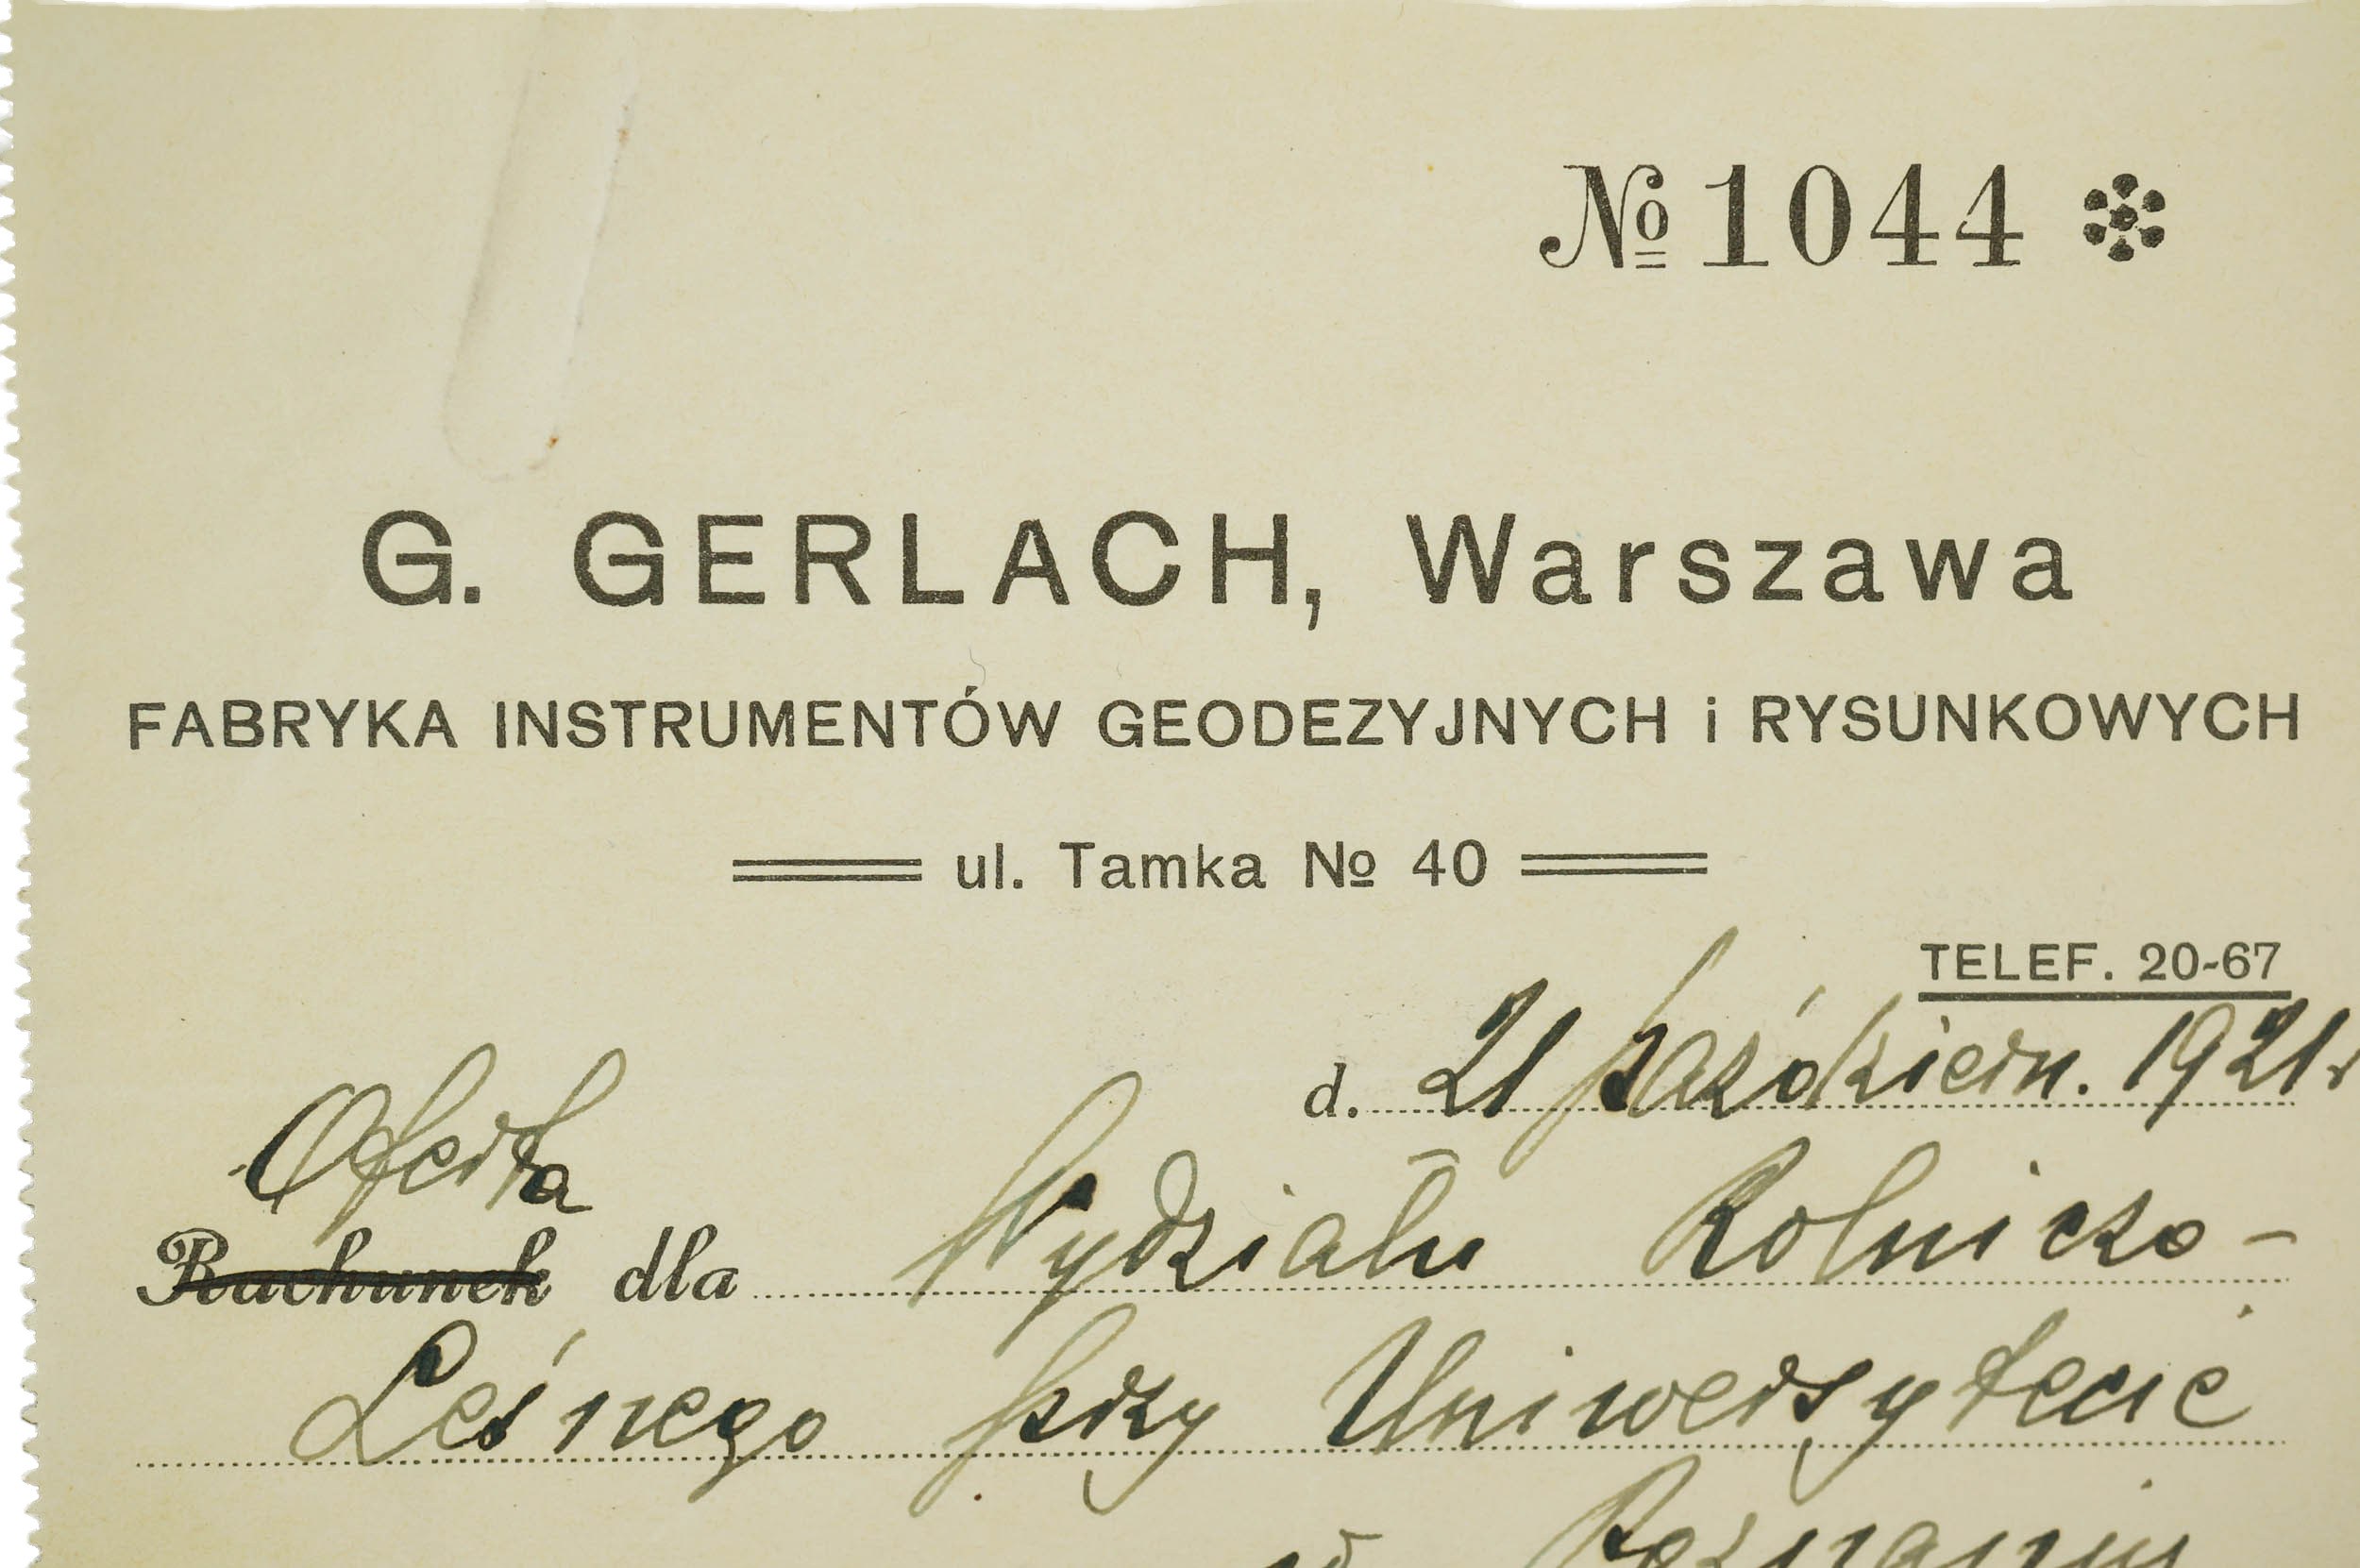 № 1044
G. GERLACH, Warszawa
FABRYKA INSTRUMENTÓW GEODEZYJNYCH i RYSUNKOWYCH
ul. Tamka № 40
TELEF. 20-67
d. 21 październ. 1921 r
Oferta
Rachunek dla Wydziału Rolniczo-
Leśnego przy Uniwersytecie
w Poznaniu